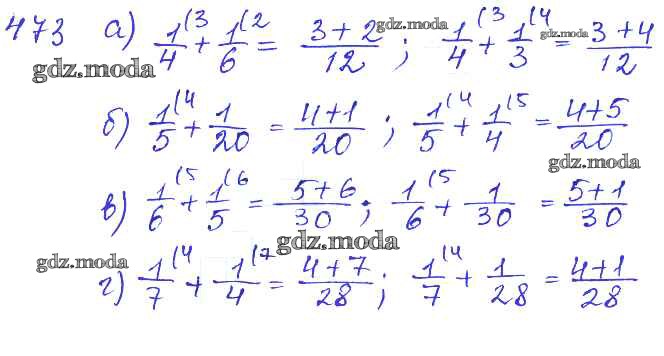 473 а) 1/4(3 + 1/6(2 = 3+2/12 ; 1/4(3 + 1/3(4 = 3+4/12
gdz.moda gdz.moda gdz.moda
б) 1/5(4 + 1/20 = 4+1/20 ; 1/5(4 + 1/4(5 = 4+5/20
gdz.moda
в) 1/6(5 + 1/5(6 = 5+6/30 ; 1/6(5 + 1/30 = 5+1/30
gdz.moda
gdz.moda
г) 1/7(4 + 1/4(7 = 4+7/28 ; 1/7(4 + 1/28 = 4+1/28